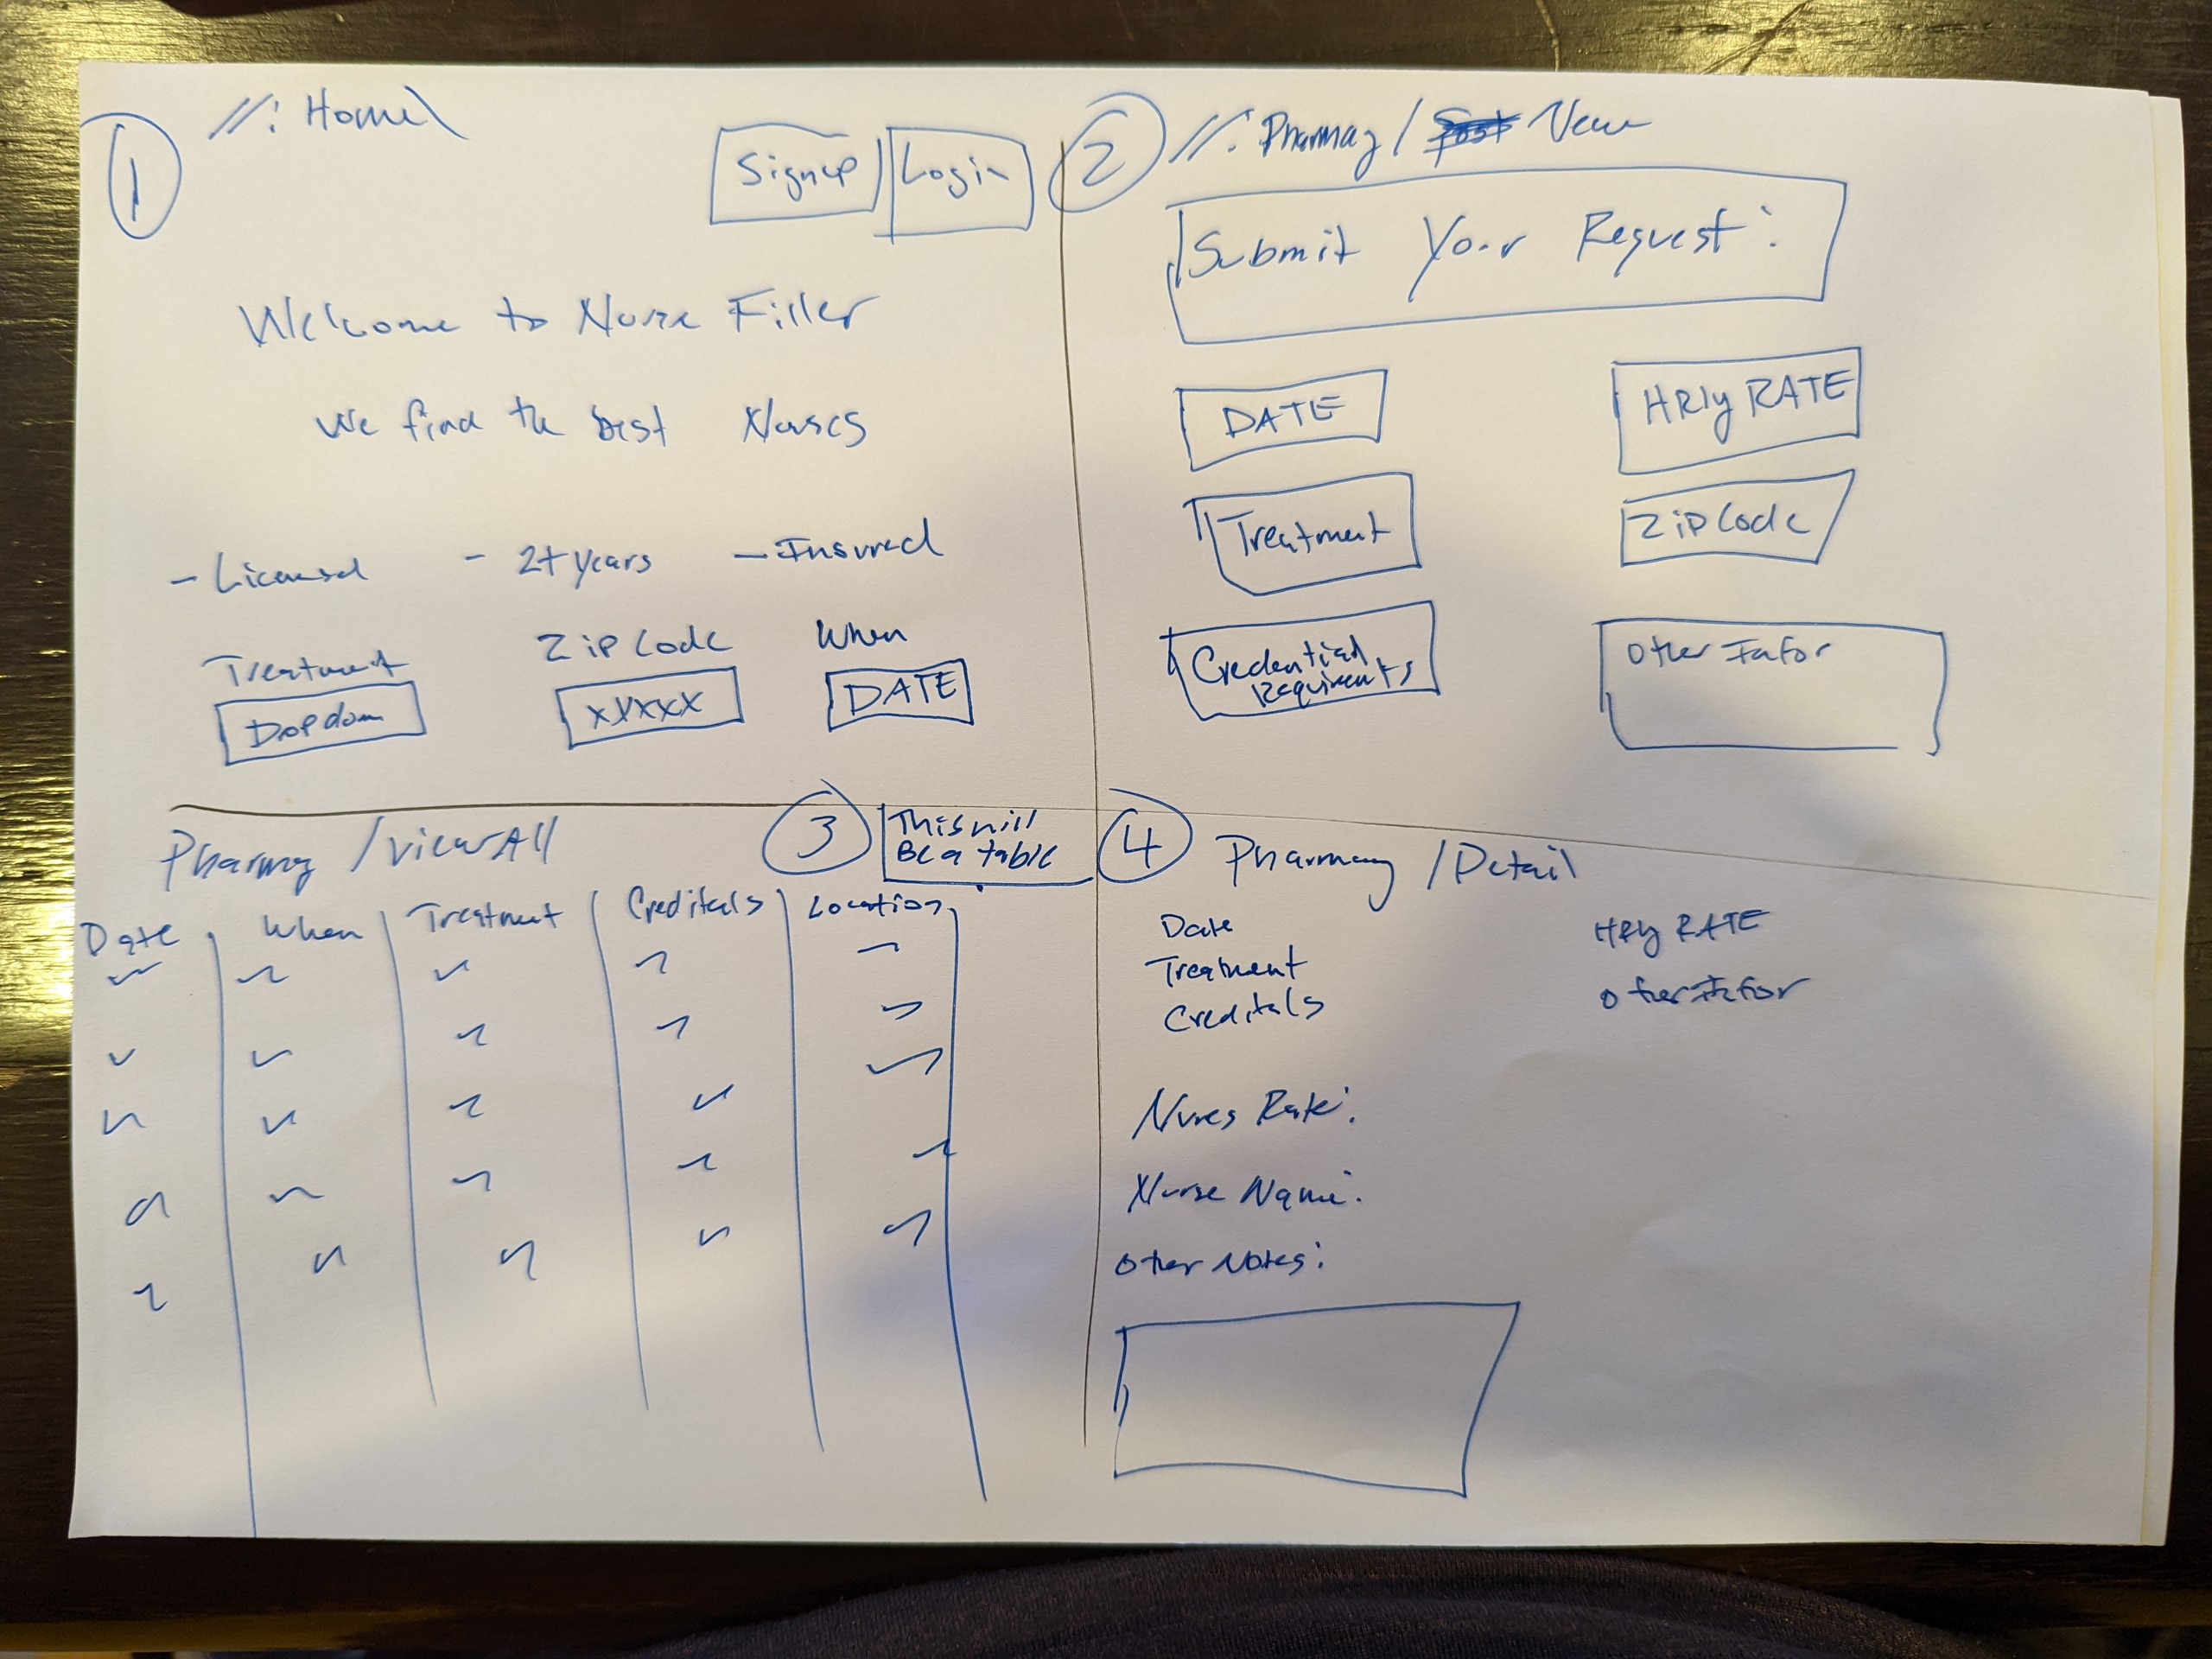 1
//: Home\
Signup Login
Welcome to Nurse Filler
We find the best Nurses
- Licensed - 2+ years - Insured
Treatment Zip Code When
Dopdown XXXXX DATE
2
//: Pharmay / New
Submit Your Request:
DATE HRly RATE
Treatment Zip Code
Credential Requirments
Other Infor
Pharmay / view All
3
This will
Be a table
Date When Treatment Creditals Location
4
Pharmacy / Detail
Date HRly RATE
Treatment Other Infor
Creditals
Nures Rate:
Nurse Name:
Other Notes: